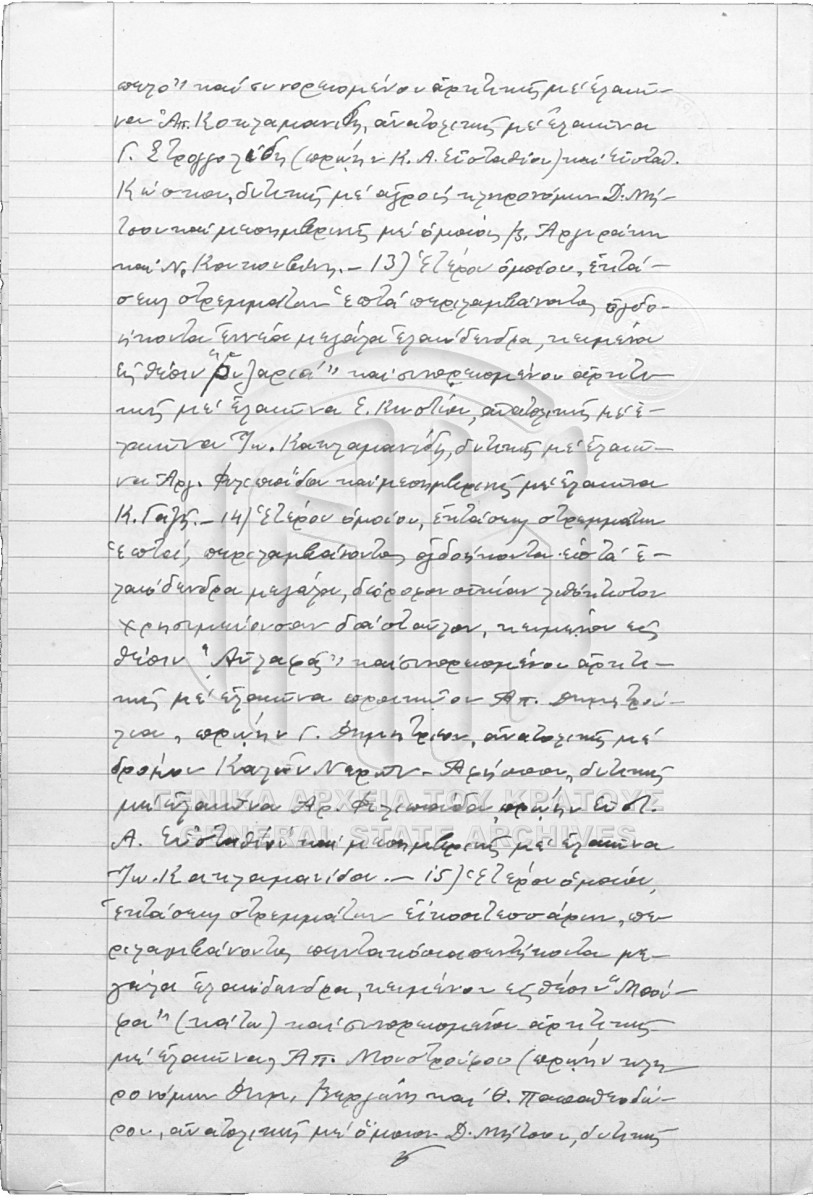 καὶ συνορευομένου ἀρκτικῶς μὲ ἐλαιῶ-
να Ἀπ. Κακλαμανίδη, ἀνατολικῶς μὲ ἐλαιῶνα
Γ. Στρογγολίδη (πρώην Κ. Α. Εὐσταθίου) καὶ Εὐσταθ.
Κώστκου, δυτικῶς μὲ ἀγροὺς κληρονόμων Δ. Μή-
τσου καὶ μεσημβρινῶς μὲ ὁμοίους β. Ἀργυράκη
καὶ Ν. Κουκουβίνη. – 13) Ἑτέρου ὁμοίου, ἐκτά-
σεως στρεμμάτων ἑπτὰ περιλαμβάνοντος ὀγδο-
ήκοντα ἐννέα μεγάλα ἐλαιόδενδρα, κειμένου
εἰς θέσιν καὶ συνορευομένου ἀρκτι-
κῶς μὲ ἐλαιῶνα Ε. Κωστίου, ἀνατολικῶς μὲ ἐ-
λαιῶνα Ἰω. Κακλαμανίδη, δυτικῶς μὲ ἐλαιῶ-
να Ἀργ. Φιλιππίδου καὶ μεσημβρινῶς μὲ ἐλαιῶνα
Κ. Γαζῆ. – 14) Ἑτέρου ὁμοίου, ἐκτάσεως στρεμμάτων
ἑπτά, περιλαμβάνοντος ὀγδοήκοντα ἑπτὰ ἐ-
λαιόδενδρα μεγάλα, διόροφον οἰκίαν λιθόκτιστον
χρησιμεύουσαν διὰ σταῦλον, κειμένου εἰς
θέσιν " καὶ συνορευομένου ἀρκτι-
κῶς μὲ ἐλαιῶνα προικῶον Ἀπ. Δημητρού-
λια, πρώην Γ. Δημητρίου, ἀνατολικῶς μὲ
δρόμον Καλῶν Νερῶν – Ἀφήσσου, δυτικῶς
μὲ ἐλαιῶνα Ἀρ. Φιλιππίδου πρώην Εὐστ.
Α. Εὐσταθίου καὶ μεσημβρινῶς μὲ ἐλαιῶνα
Ἰω. Κακλαμανίδου. – 15) Ἑτέρου ὁμοίου,
ἐκτάσεως στρεμμάτων εἴκοσι τεσσάρων, πε-
ριλαμβάνοντος πεντακόσια πεντήκοντα με-
γάλα ἐλαιόδενδρα, κειμένου εἰς θέσιν "Μπού-
φα" (κάτω) καὶ συνορευομένου ἀρκτικῶς
μὲ ἐλαιῶνας Ἀπ. Μουστρούφου (πρώην κλη-
ρονόμων Δημ. Βεργίνη καὶ Θ. Παπαθεοδώ-
ρου, ἀνατολικῶς μὲ ὅμοιον Δ. Μήτσου, δυτικῶς
ΓΕΝΙΚΑ ΑΡΧΕΙΑ ΤΟΥ ΚΡΑΤΟΥΣ
GENERAL STATE ARCHIVES